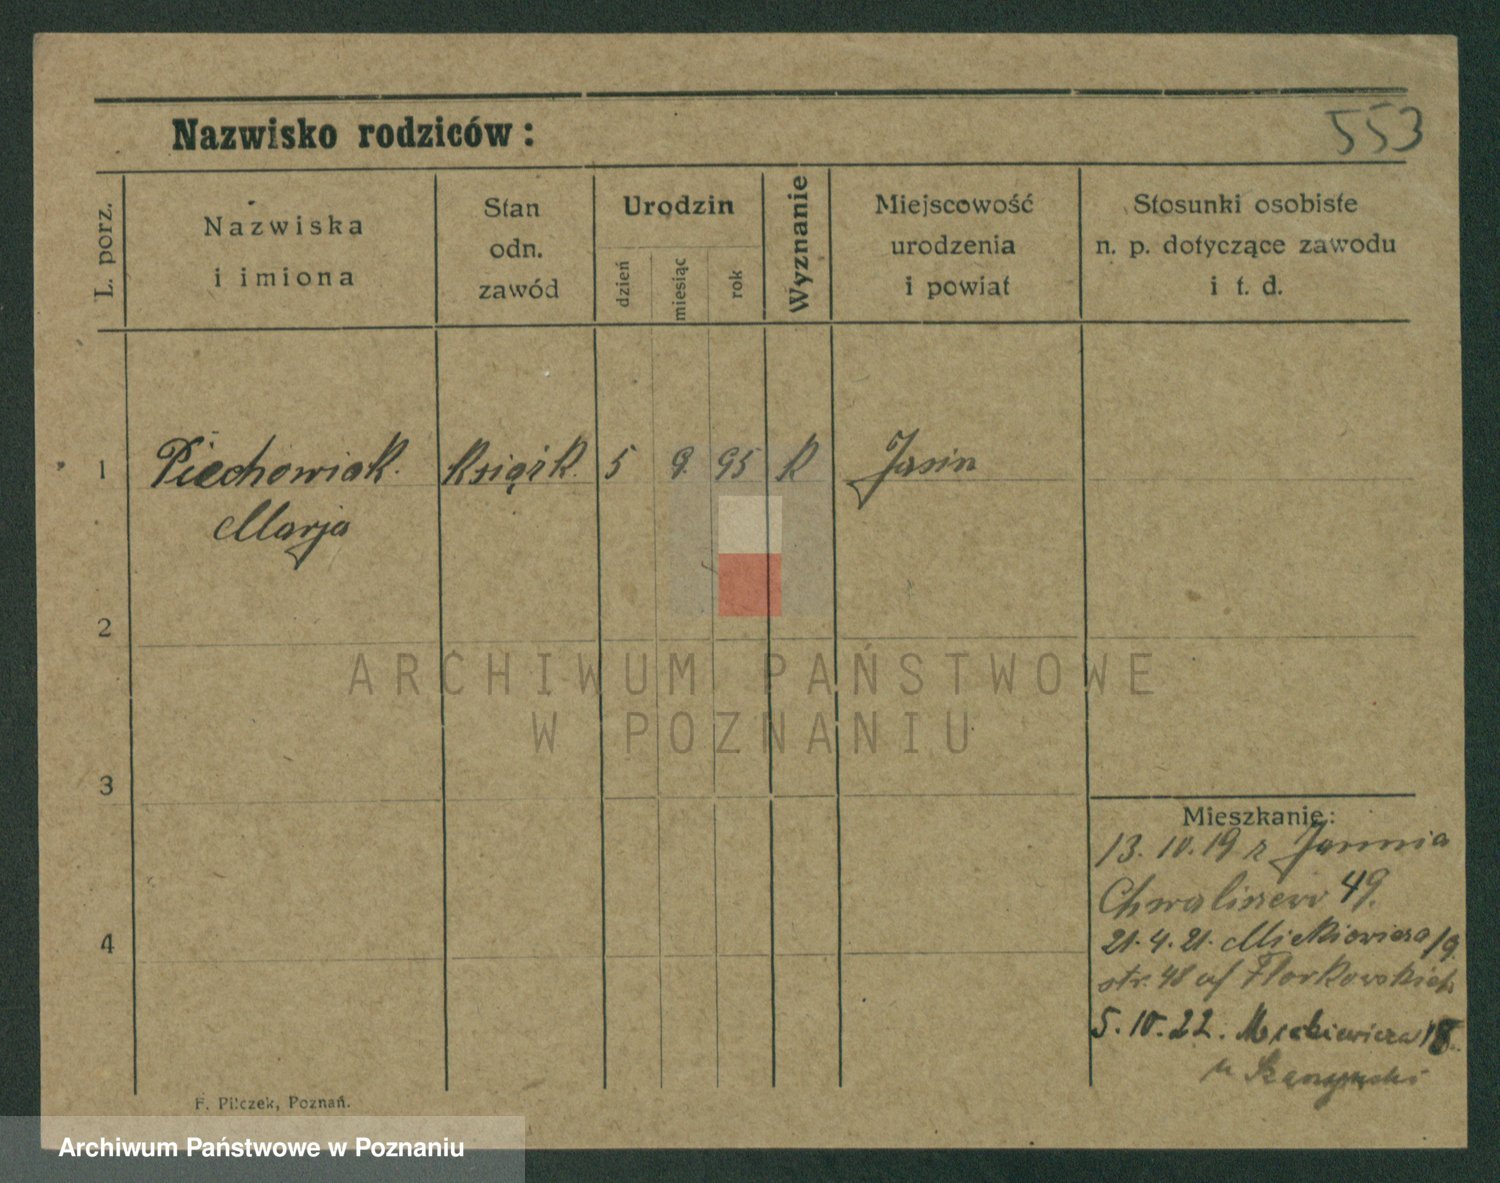 553
Nazwisko rodziców:
L. porz.
Nazwiska
i imiona
Stan
odn.
zawód
Urodzin
dzień
miesiąc
rok
Wyznanie
Miejscowość
urodzenia
i powiat
Stosunki osobiste
n. p. dotyczące zawodu
i t. d.
1 Piechowiak Książk. 5 9. 95 K Jasin
Marja
2
3
4
Mieszkanie:
13. 10. 19 z
Chwaliszewo 49.
21. 4. 21. Mickiewicza 19
str. 48 Florkowskich
5. 10. 22. Mickiewicza 18
u
F. Pilczek, Poznań.
ARCHIWUM PAŃSTWOWE
W POZNANIU
Archiwum Państwowe w Poznaniu